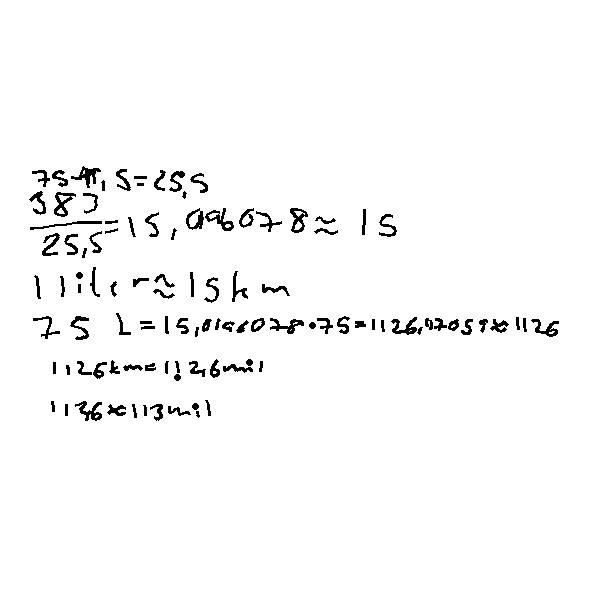 75-49,5=25,5
383
25,5 =15,0196078≈15
1 liter≈15km
75 L=15,0196078·75=1126,47059≈1126
1126km=112,6mil
112,6≈113mil